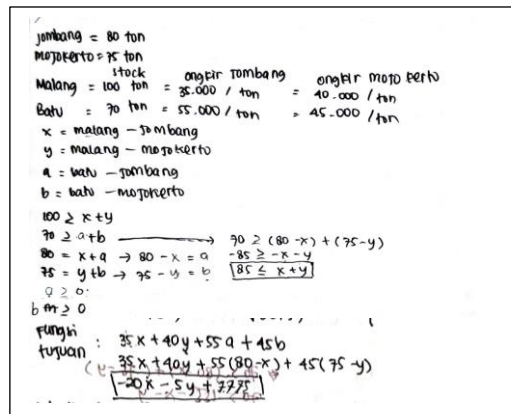 jombang = 80 ton
mojokerto = 75 ton
stock ongkir Jombang ongkir mojokerto
Malang = 100 ton = 35.000 / ton = 40.000 /ton
Batu = 70 ton = 55.000 / ton = 45.000 /ton
x = malang – Jombang
y = malang – mojokerto
a = batu – Jombang
b = batu – mojokerto
100 ≥ x+y
70 ≥ a+b → 70 ≥ (80-x) + (75-y)
80 = x+a → 80 - x = a -85 ≥ -x - y
75 = y+b → 75 - y = b 85 ≤ x+y
a ≥ 0
b ≥ 0
Fungsi
tujuan : 35x + 40y + 55a + 45b
35x + 40y + 55(80-x) + 45(75-y)
-20x - 5y + 7775